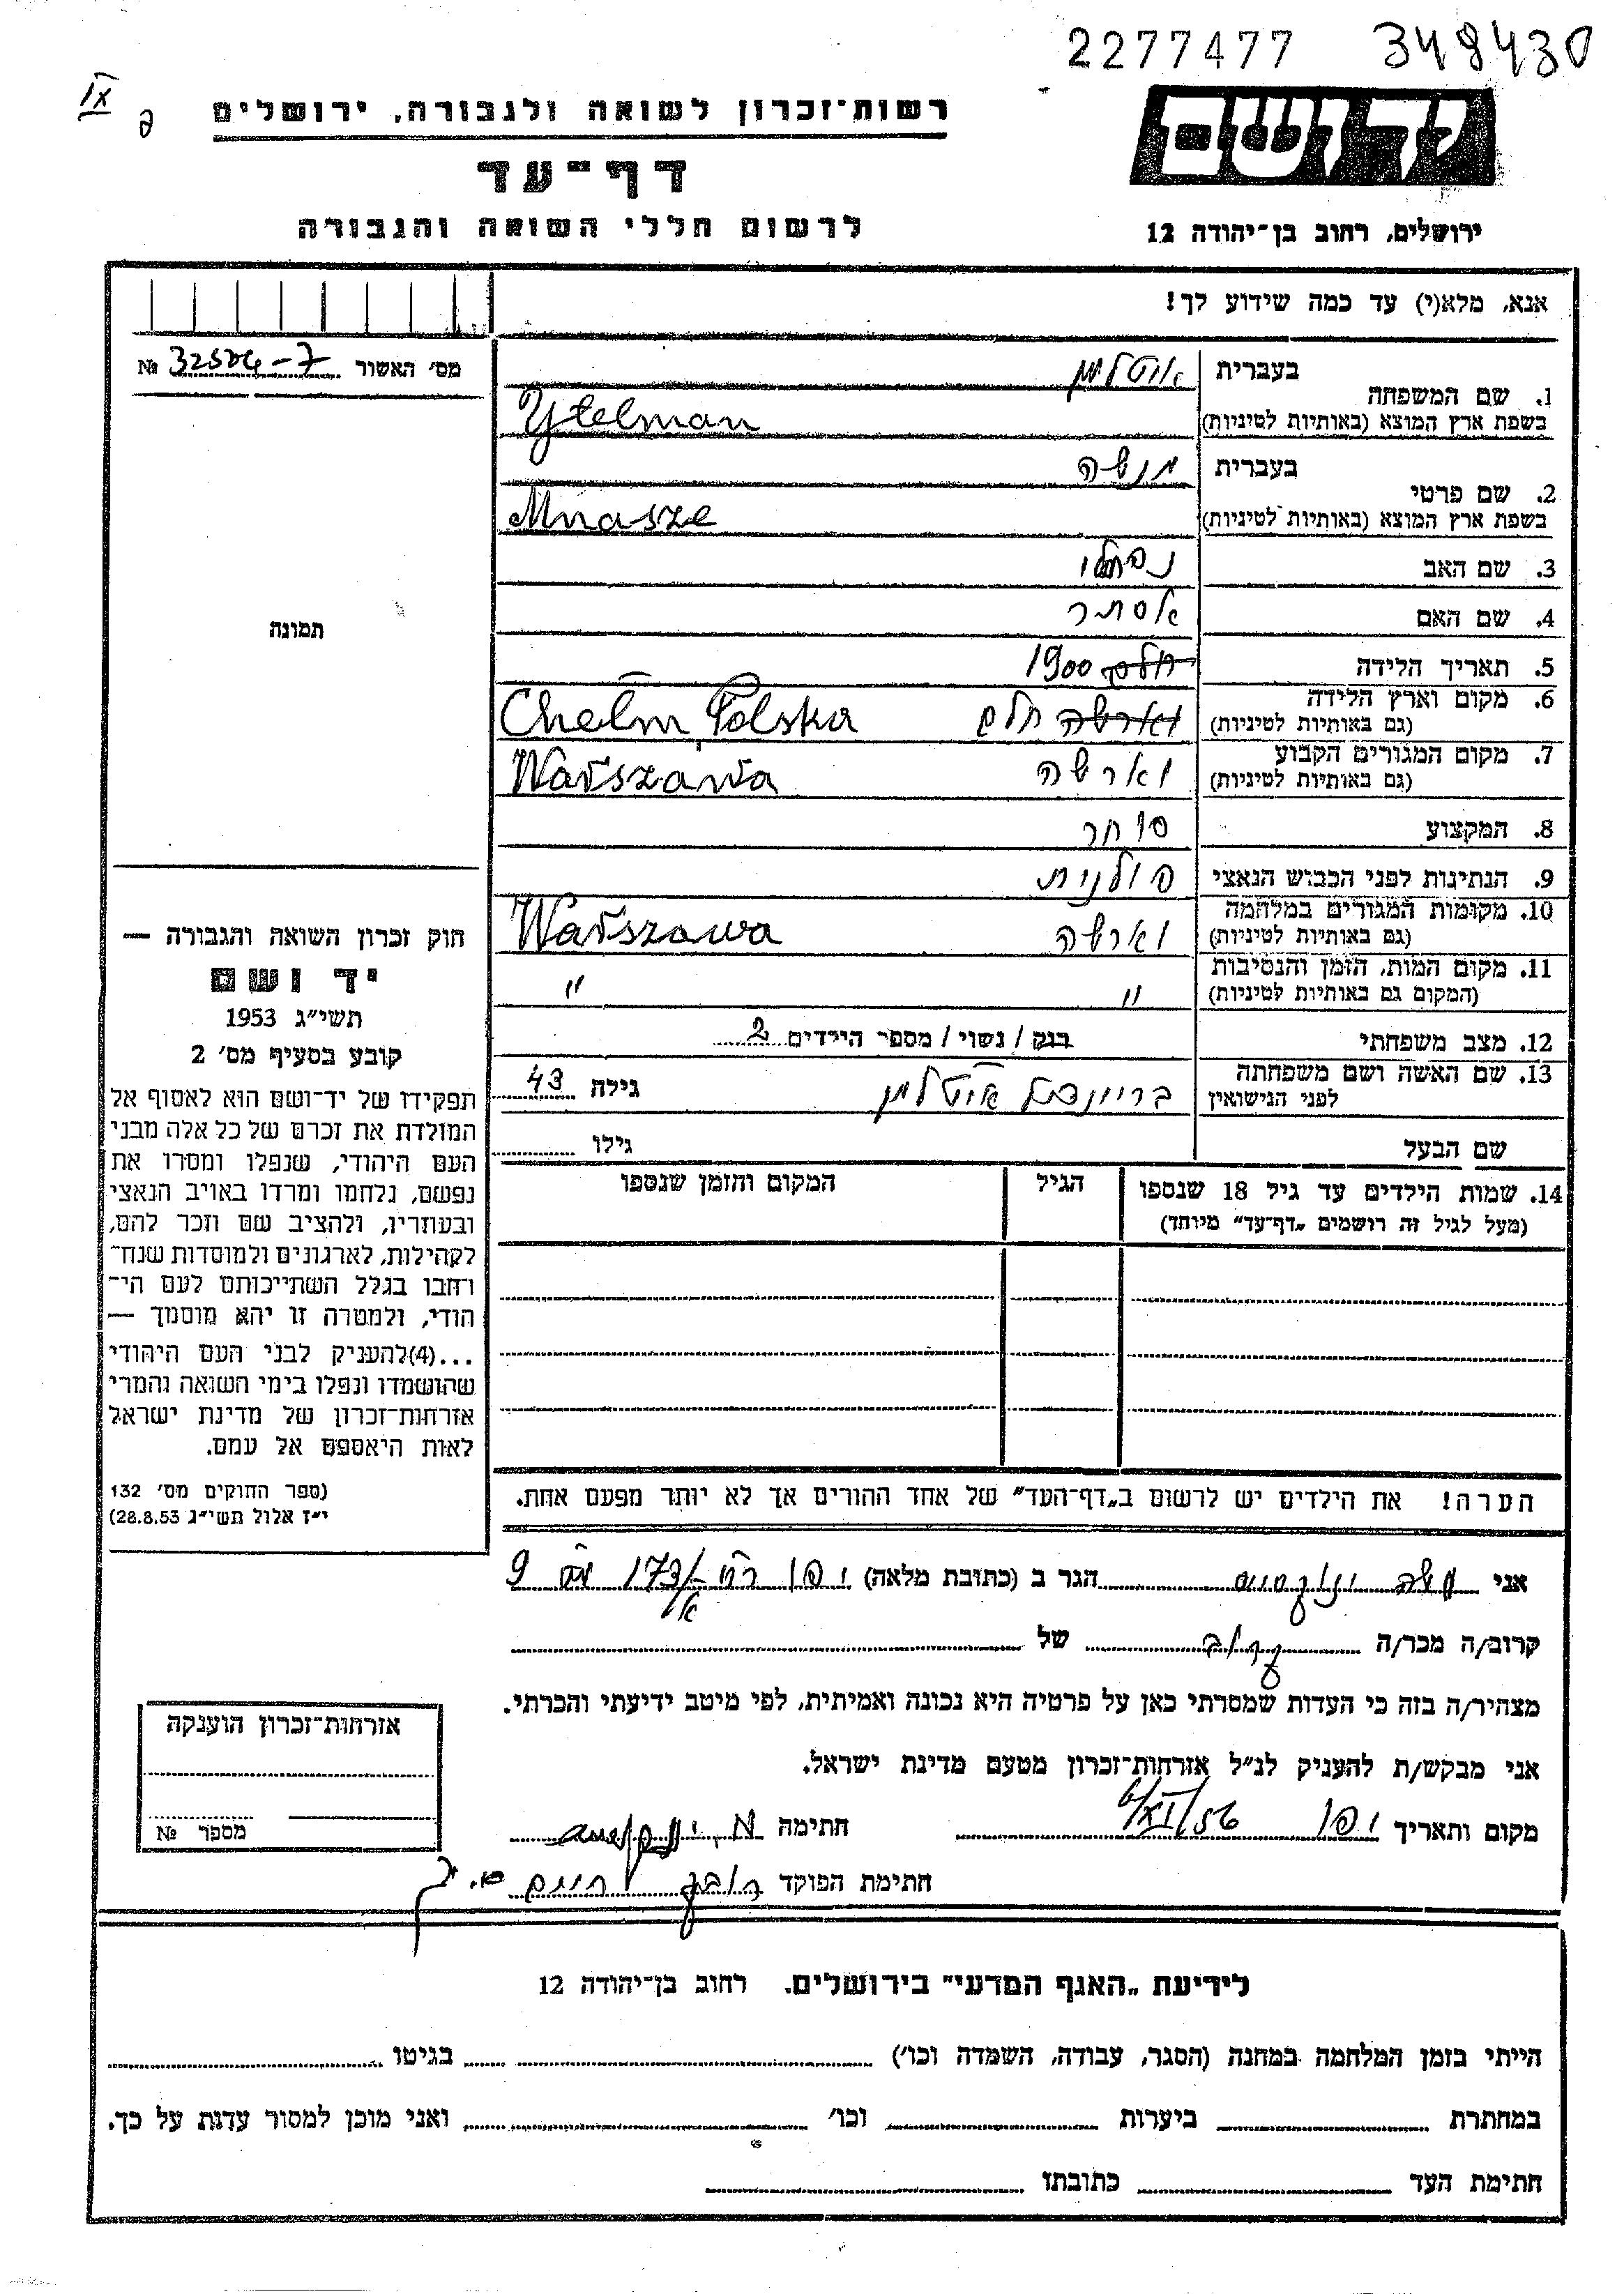 2277477 349430
IX
רשות־זכרון לשואה ולגבורה, ירושלים
יד ושם
דף־עד
לרשום חללי השואה והגבורה
ירושלים, רחוב בן־יהודה 12
אנא, מלא(י) עד כמה שידוע לך!
מס׳ האשור № 32504-7
1. שם המשפחה
בעברית איטלמן
בשפת ארץ המוצא (באותיות לטיניות) Ytelman
2. שם פרטי
בעברית מנשה
בשפת ארץ המוצא (באותיות לטיניות) Mnasze
3. שם האב נפתלי
4. שם האם אסתר
תמונה
5. תאריך הלידה חלם 1900
6. מקום וארץ הלידה (גם באותיות לטיניות) וארשה חלם Chelm, Polska
7. מקום המגורים הקבוע (גם באותיות לטיניות) וארשה Warszawa
8. המקצוע סוחר
9. הנתינות לפני הכבוש הנאצי פולנית
10. מקומות המגורים במלחמה (גם באותיות לטיניות) וארשה Warszawa
11. מקום המות, הזמן והנסיבות (המקום גם באותיות לטיניות) " "
12. מצב משפחתי רווק / נשוי / מספר הילדים 2
13. שם האשה ושם משפחתה לפני הנישואין בריינדל איטלמן גילה 43
שם הבעל גילו
14. שמות הילדים עד גיל 18 שנספו הגיל המקום והזמן שנספו
(מעל לגיל זה רושמים „דף־עד״ מיוחד)
חוק זכרון השואה והגבורה —
יד ושם
תשי״ג 1953
קובע בסעיף מס׳ 2
תפקידו של יד־ושם הוא לאסוף אל
המולדת את זכרם של כל אלה מבני
העם היהודי, שנפלו ומסרו את
נפשם, נלחמו ומרדו באויב הנאצי
ובעוזריו, ולהציב שם וזכר להם,
לקהילות, לארגונים ולמוסדות שנח־
רבו בגלל השתייכותם לעם הי־
הודי, ולמטרה זו יהא מוסמך —
...(4)להעניק לבני העם היהודי
שהושמדו ונפלו בימי השואה והמרי
אזרחות־זכרון של מדינת ישראל
לאות היאספם אל עמם.
(ספר החוקים מס׳ 132
י״ז אלול תשי״ג 28.8.53)
הערה! את הילדים יש לרשום ב„דף־העד״ של אחד ההורים אך לא יותר מפעם אחת.
אני משה הגר ב (כתובת מלאה) יפו 173/ 9
קרוב/ה מכר/ה קרוב של
מצהיר/ה בזה כי העדות שמסרתי כאן על פרטיה היא נכונה ואמיתית, לפי מיטב ידיעתי והכרתי.
אני מבקש/ת להעניק לנ״ל אזרחות־זכרון מטעם מדינת ישראל.
מקום ותאריך יפו 6/XI/56 חתימה
חתימת הפוקד
אזרחות־זכרון הוענקה
מספר №
לידיעת „האגף המדעי״ בירושלים. רחוב בן־יהודה 12
הייתי בזמן המלחמה במחנה (הסגר, עבודה, השמדה וכו׳) בגיטו
במחתרת ביערות וכו׳ ואני מוכן למסור עדות על כך.
חתימת העד כתובתו